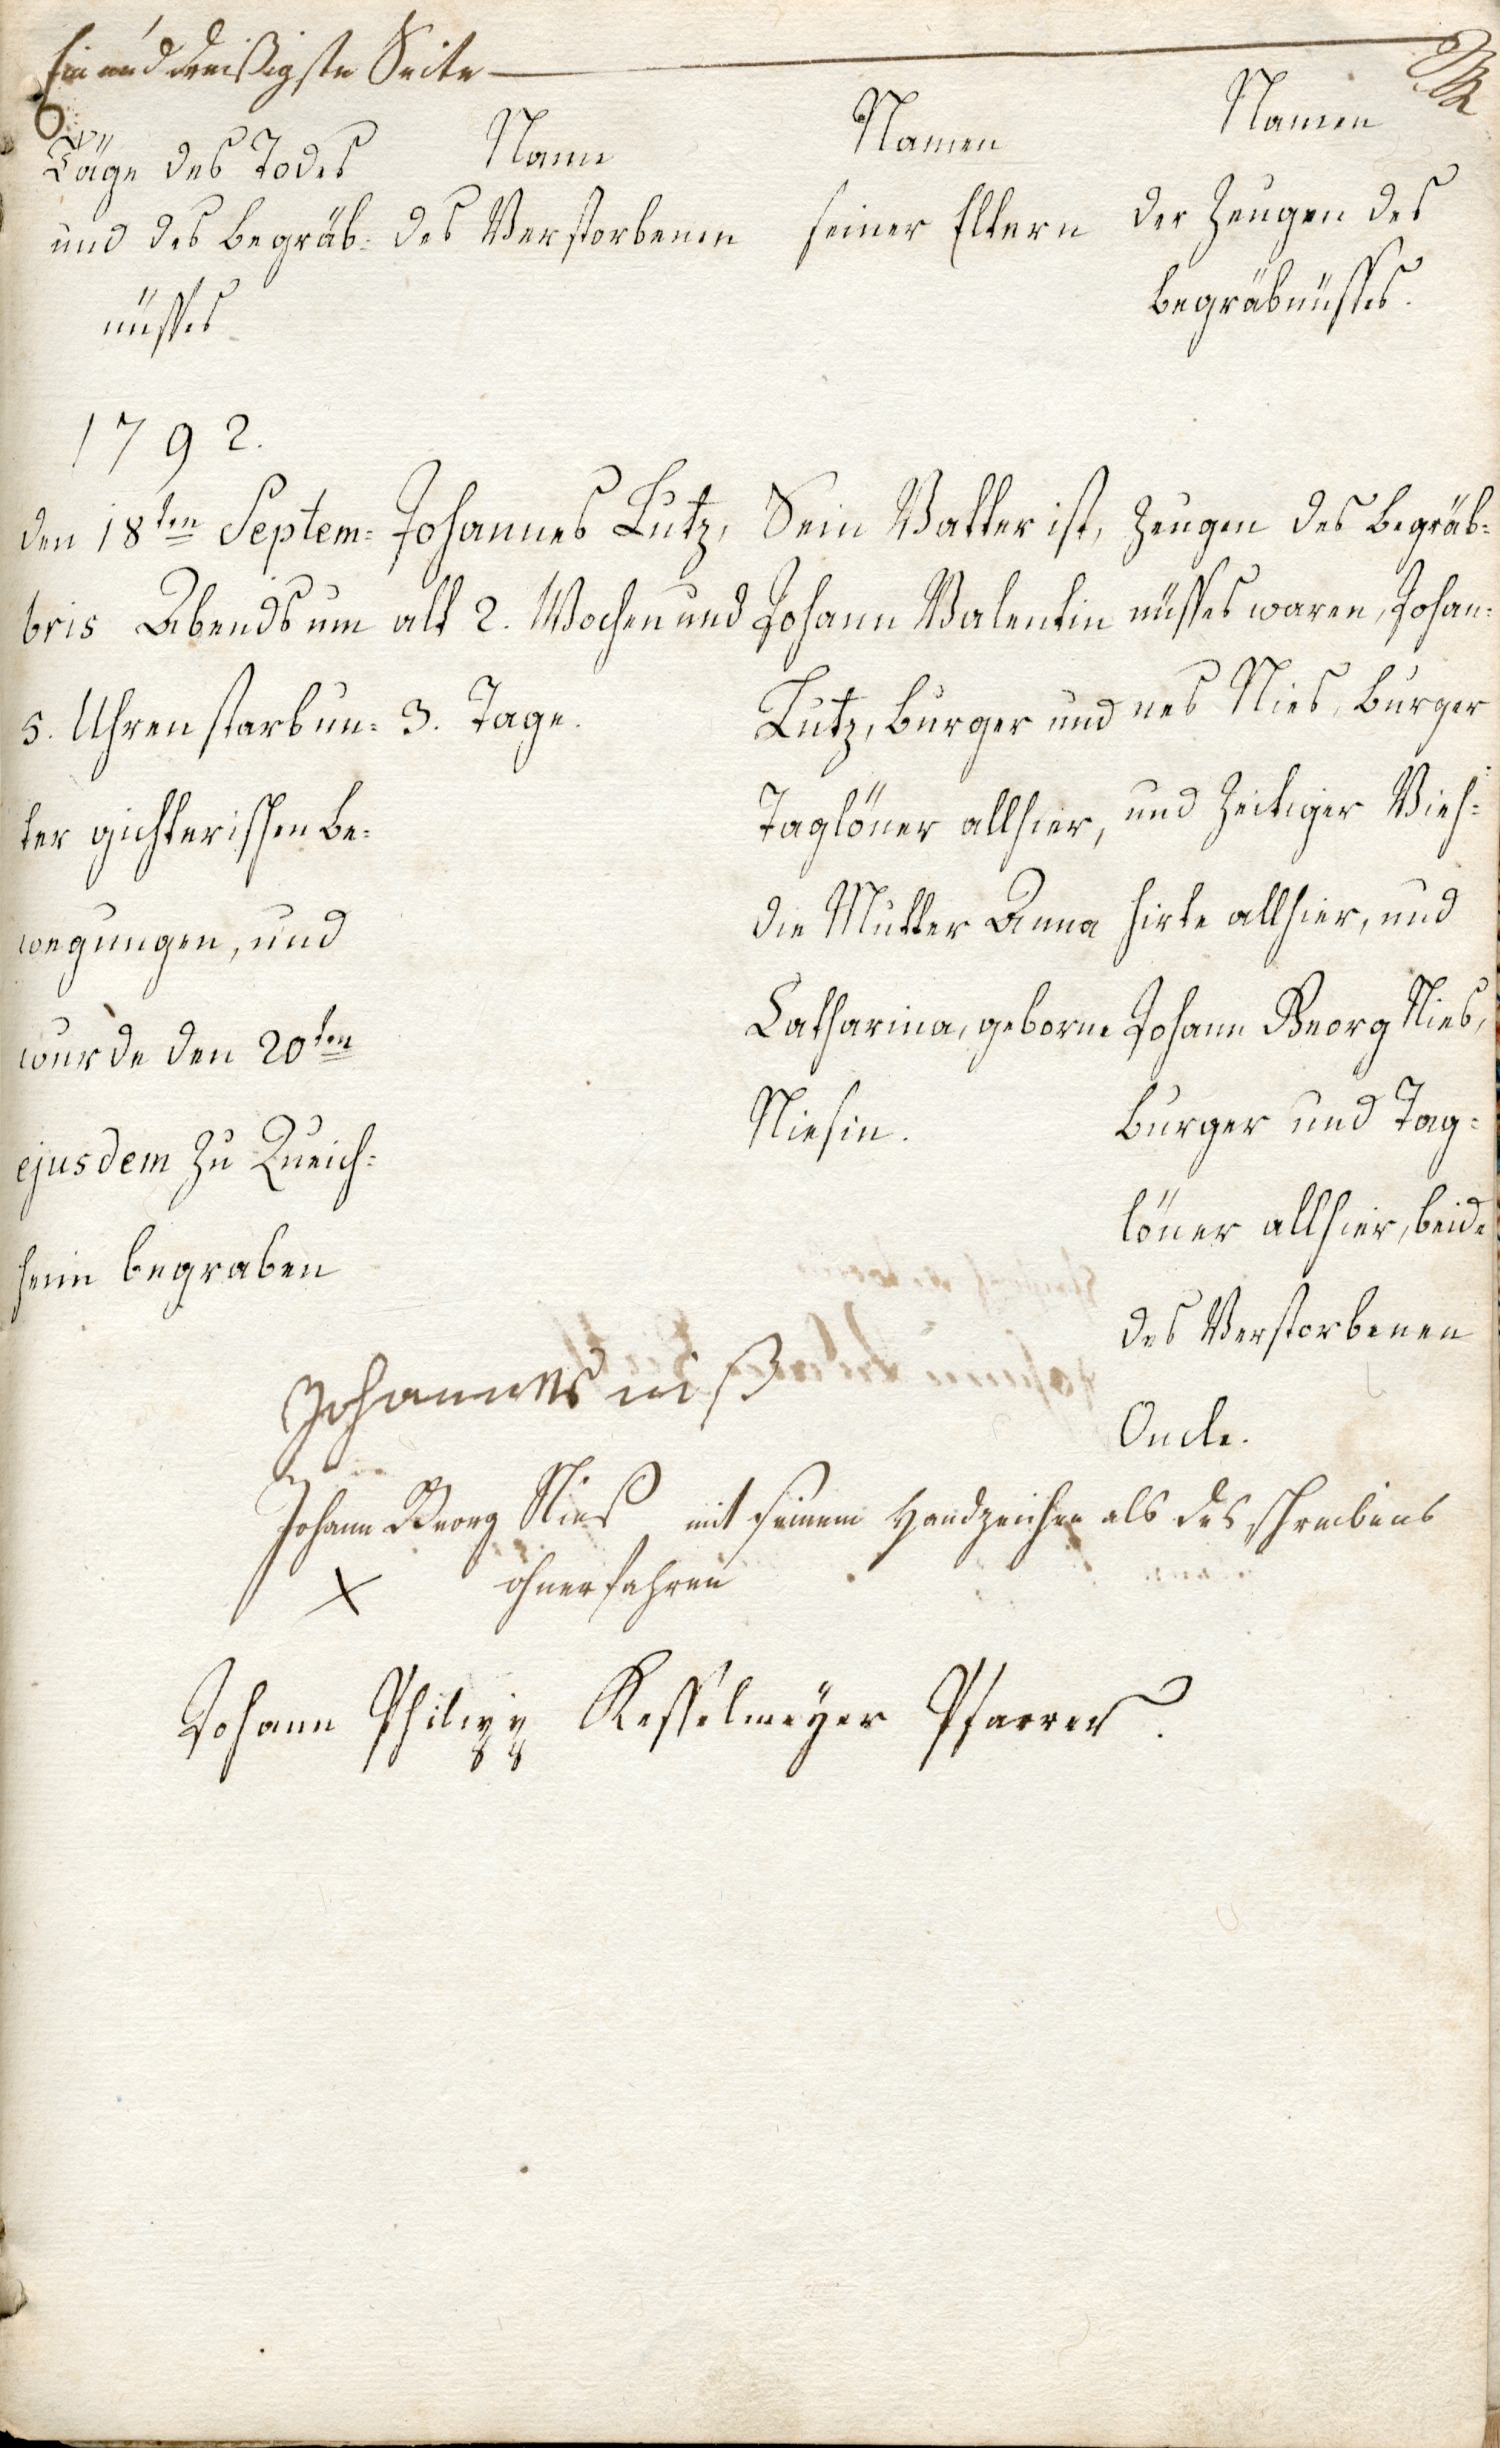 Ein und dreißigste Seite
Täge des Todes
und des Begräb=
nüßes
Name
des Verstorbenen
Namen
seiner Eltern
Namen
der Zeugen des
Begräbnüßes.
1792.
den 18ten Septem=
bris Abends um
5. Uhren starb un=
ter gichterischen Be=
wegungen, und
wurde den 20ten
ejusdem zu Queich=
heim begraben
Johannes Lutz,
alt 2. Wochen und
3. Tage.
Sein Vatter ist,
Johann Valentin
Lutz, Burger und
Taglöner allhier,
die Mutter Anna
Catharina, geborne
Niesin.
Zeugen des Begräb=
nüßes waren, Johan=
nes Nies, Burger
und zeitiger Vieh=
hirte allhier, und
Johann Georg Nies,
Burger und Tag=
löner allhier, beide
des Verstorbenen
Oncle.
Johannes niß
Johann Georg Nies mit seinem Handzeichen als des schreibens
X ohnerfahren
Johann Philipp Kesselmeÿer Pfarrer.